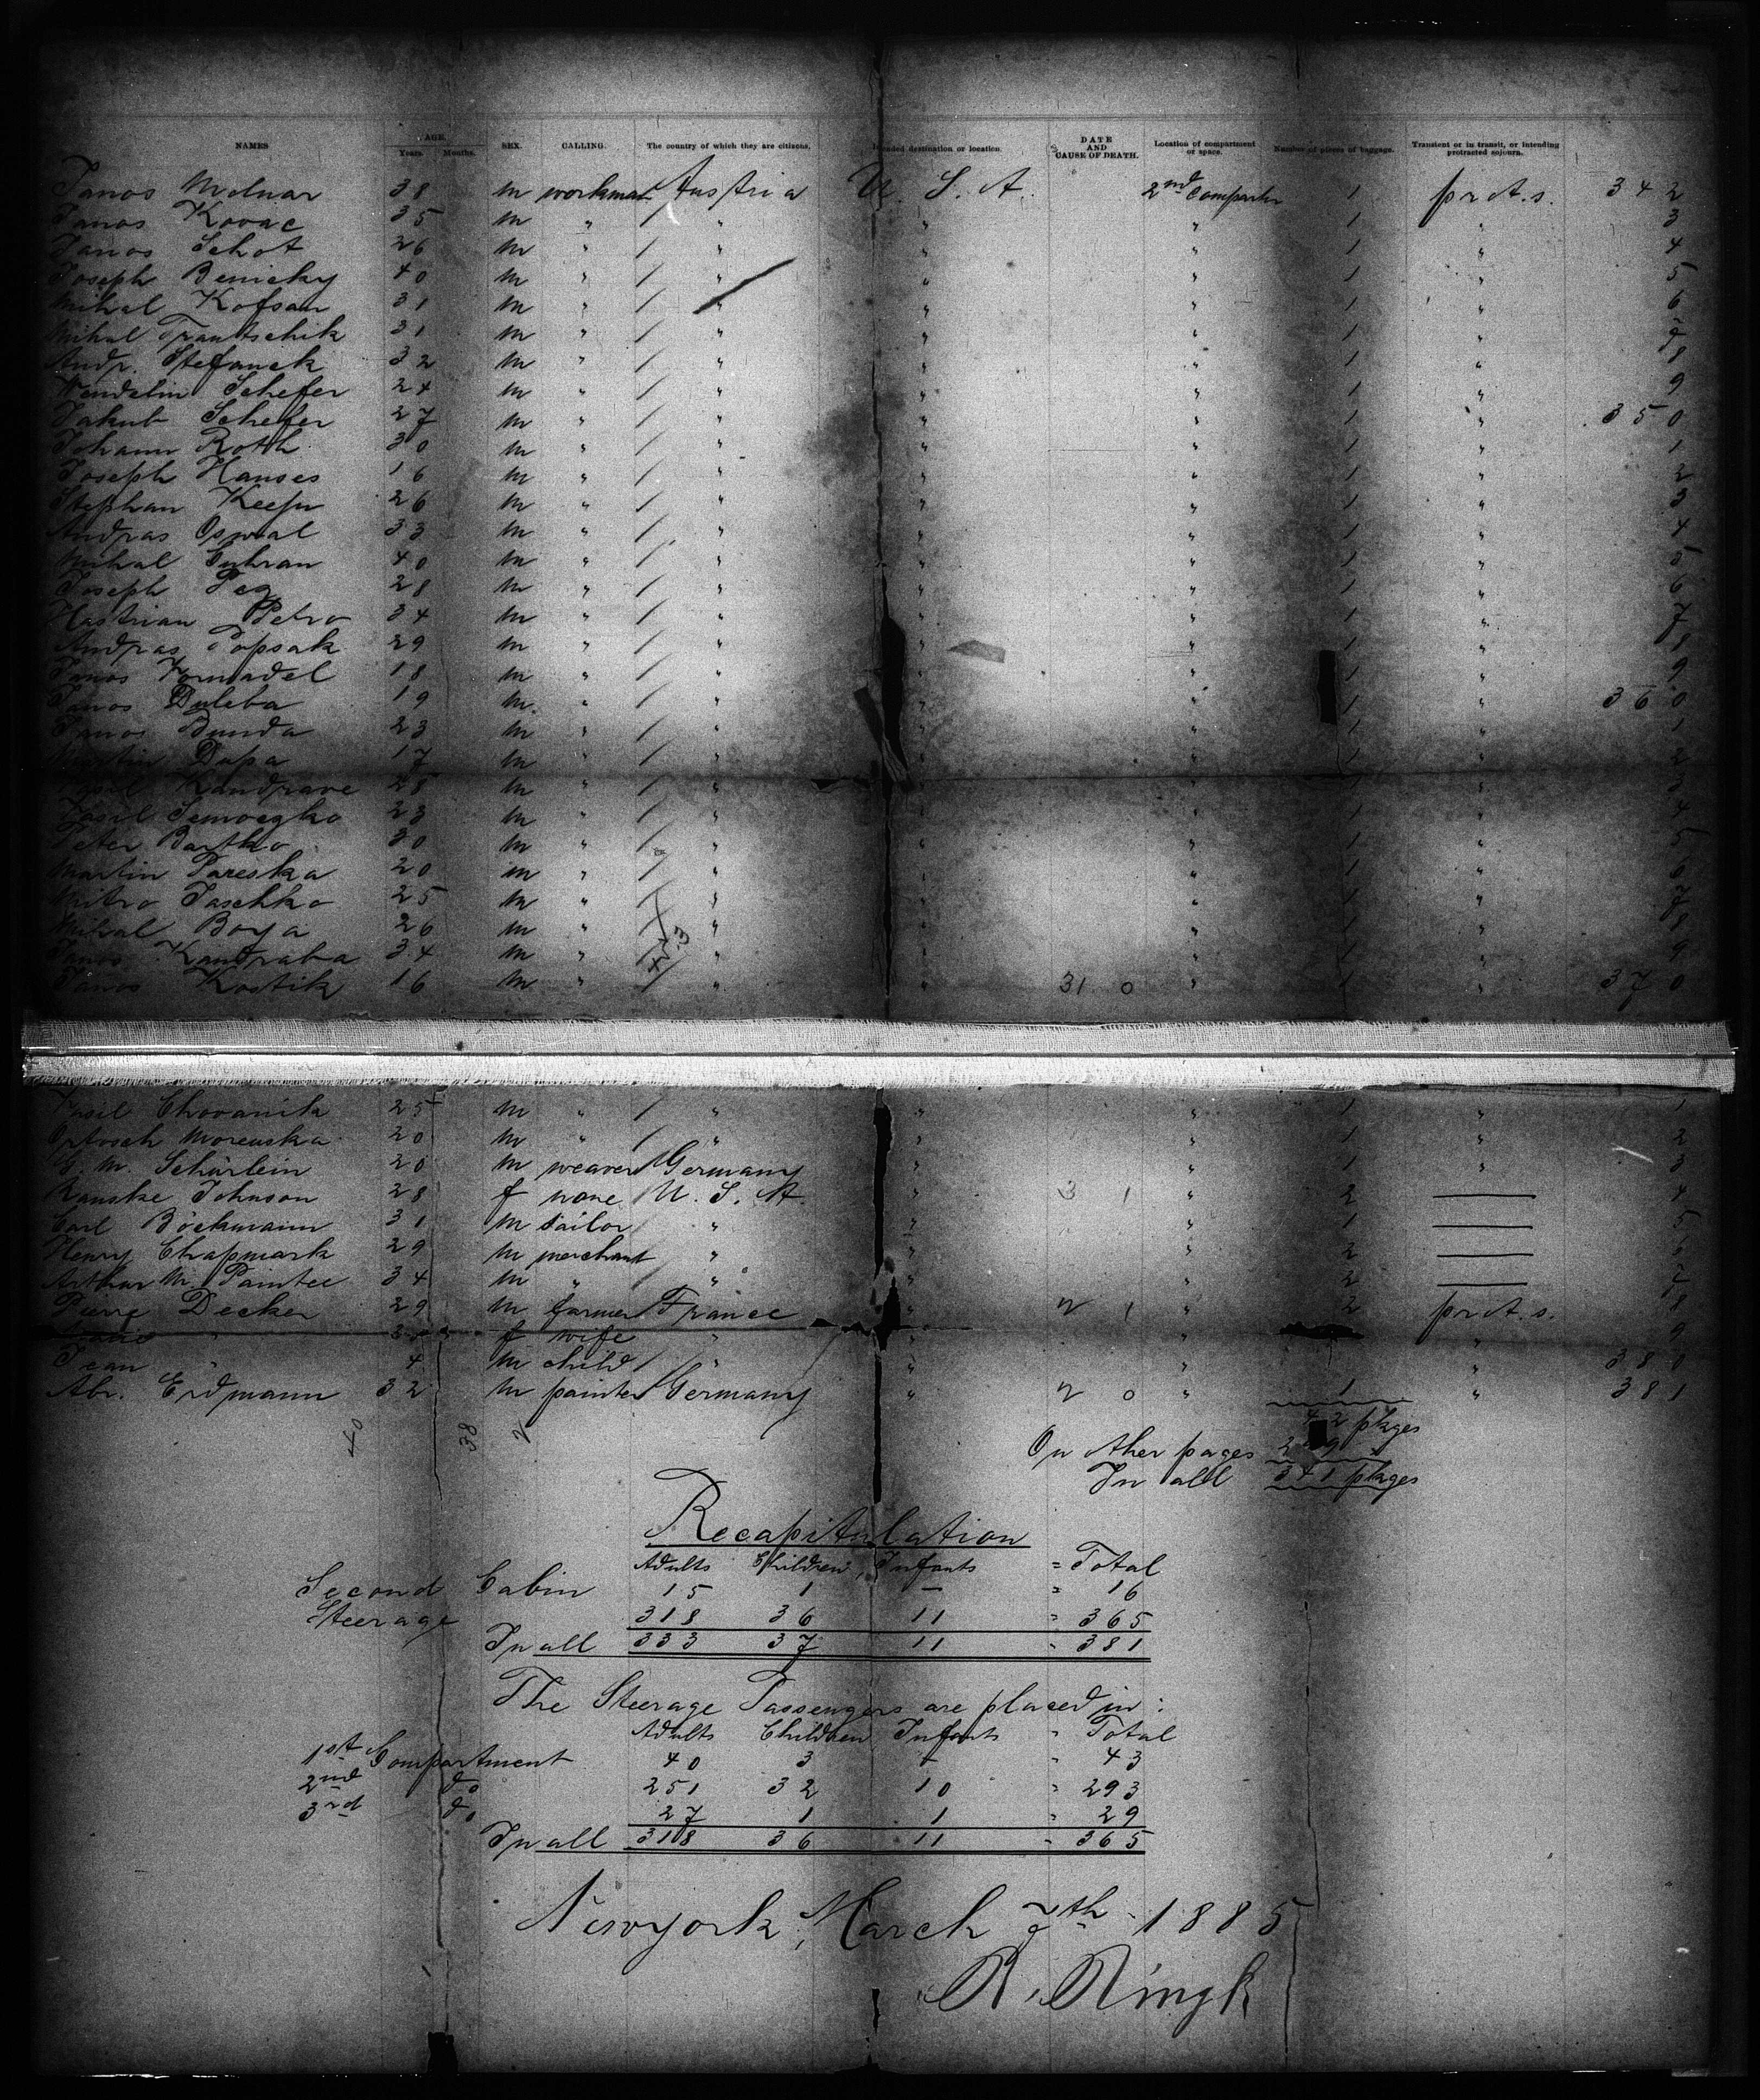 NAMES AGE. Years. Months. SEX. CALLING. The country of which they are citizens. Intended destination or location. DATE AND CAUSE OF DEATH. Location of compartment or space. Number of pieces of baggage. Transient or in transit, or intending protracted sojourn.
Janos Molnar 38 m workman Austria U. S. A. 2nd Compartm 1 prot.s. 342
Janos Kovac 35 m " / " " " 1 " 3
Janos Schot 26 m " / " " " 1 " 4
Joseph Benicky 40 m " / " " " 1 " 5
Mihal Kofsan 31 m " / " " " 1 " 6
Mihal Trautschik 31 m " / " " " 1 " 7
Andr. Stefanek 32 m " / " " " 1 " 8
Wendelin Schefer 24 m " / " " " 1 " 9
Jakub Schefer 27 m " / " " " 1 " 350
Johann Roth 30 m " / " " " 1 " 1
Joseph Hanses 16 m " / " " " 1 " 2
Stephan 26 m " / " " " 1 " 3
Andras Oswal 33 m " / " " " 1 " 4
Mihal Guhran 40 m " / " " " 1 " 5
Joseph Peg 28 m " / " " " 1 " 6
Hastrian Petro 34 m " / " " " 1 " 7
Andras Popsak 29 m " / " " " 1 " 8
Janos Kornadel 18 m " / " " " 1 " 9
Janos Duleba 19 m " / " " " 1 " 360
Janos Dunda 23 m " / " " " 1 " 1
Martin Dupa 17 m " / " " " 1 " 2
Vasil Kandrave 28 m " / " " " 1 " 3
Vasil Semoegko 23 m " / " " " 1 " 4
Peter Bartko 30 m " / " " " 1 " 5
Martin Pareska 20 m " / " " " 1 " 6
Mitro Jaschko 25 m " / " " " 1 " 7
Mihal Boya 26 m " / " " " 1 " 8
Janos Kandraba 34 m " / " " " 1 " 9
Janos Kostik 16 m " / " " 31 0 " 1 " 370
Vasil Chovanik 25 m " / " " " 1 " 1
Morenska 20 m " / " " " 1 " 2
G. M. Schürlein 20 m weaver Germany " " 1 " 3
Johnson 28 f none U. S. A. " 3 1 " 2 4
Carl Böckmann 31 m tailor / " " " 1 5
Henry Chapmark 29 m merchant " " " 2 6
Arthur M. Paintee 34 m " / " " " 2 7
Pierre Decker 29 m farmer France " 2 1 " 2 prot.s. 8
" f wife " " " " 9
Jean " 4 m child / " " " " 380
Abr. Erdmann 32 m painter Germany " 2 0 " 1 " 381
40 38 2 42 pkges
On other pages 299 "
In all 341 pkges
Recapitulation
Adults Children, Infants = Total
Second Cabin 15 1 — = 16
Steerage 318 36 11 = 365
In all 333 37 11 = 381
The Steerage Passengers are placed in:
Adults Children Infants = Total
1st Compartment 40 3 - = 43
2nd do 251 32 10 = 293
3rd do 27 1 1 = 29
In all 318 36 11 = 365
Newyork, March 7th 1885
R. Ringk